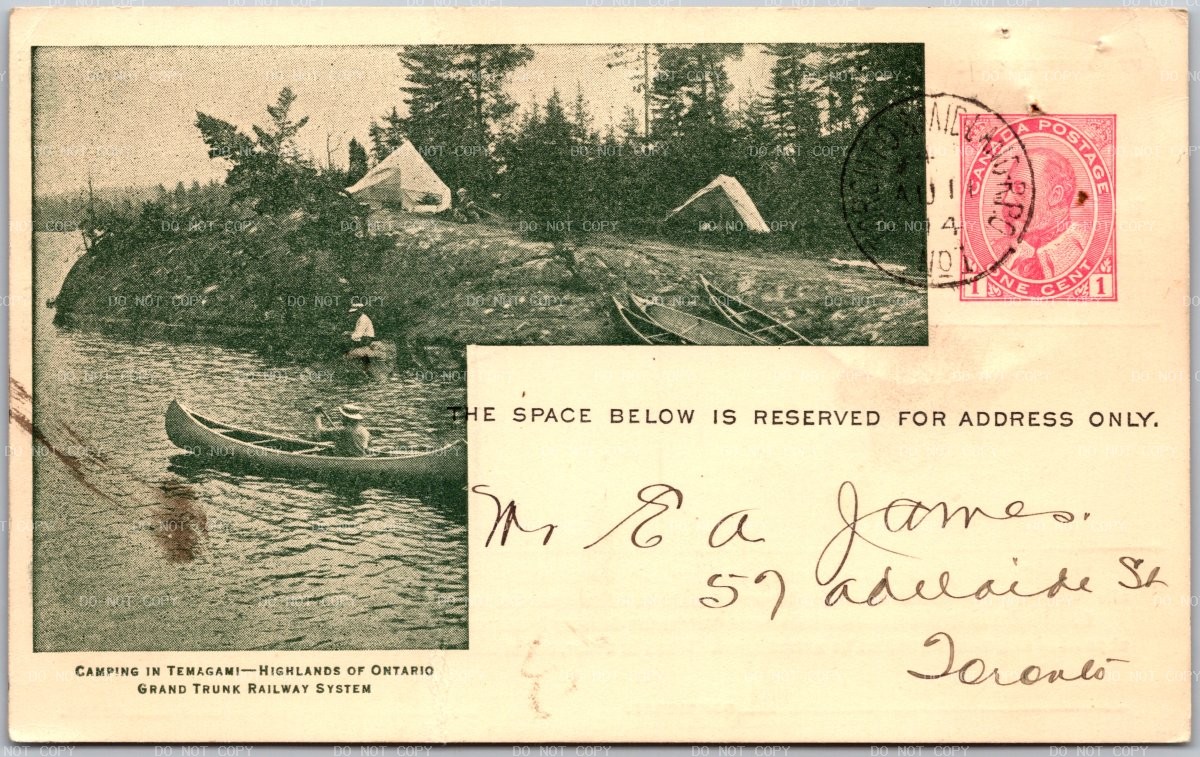 CANADA POSTAGE
ONE CENT
1 1
AU 1
14
THE SPACE BELOW IS RESERVED FOR ADDRESS ONLY.
Mr E A James.
57 Adelaide St
Toronto
CAMPING IN TEMAGAMI—HIGHLANDS OF ONTARIO
GRAND TRUNK RAILWAY SYSTEM
DO NOT COPY